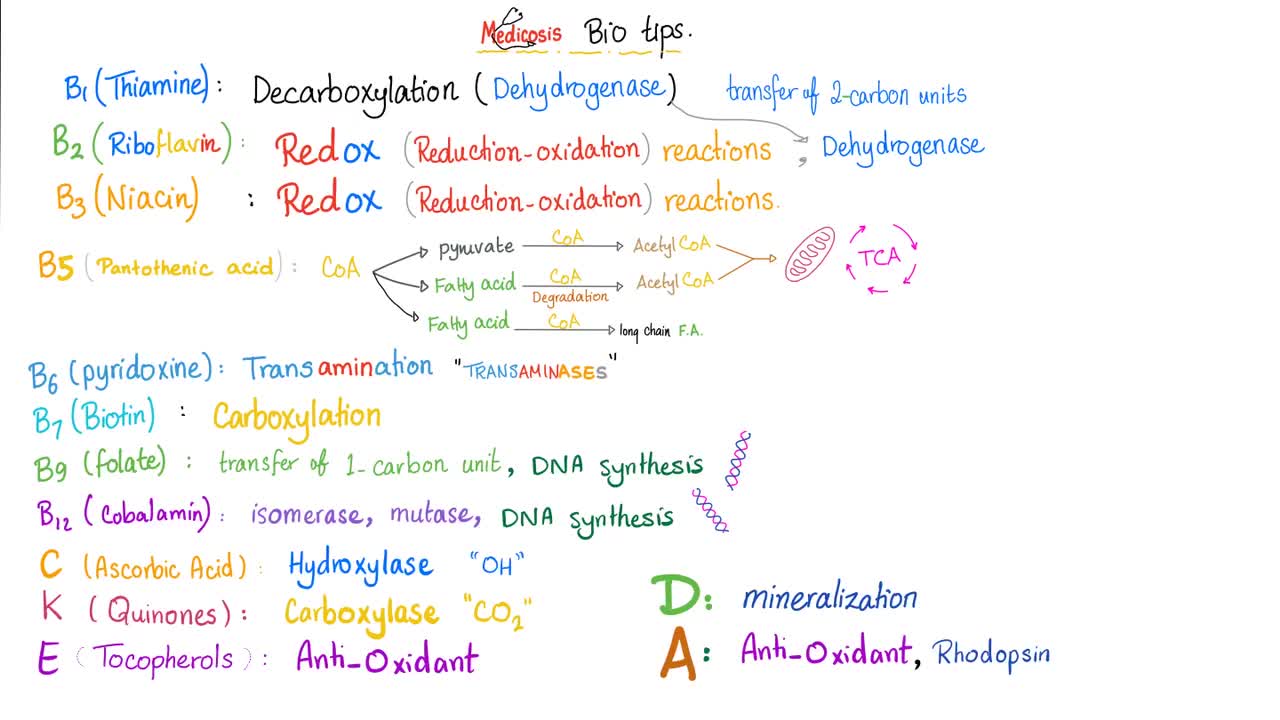 Medicosis Bio tips.
B1 (Thiamine): Decarboxylation (Dehydrogenase) transfer of 2-carbon units
B2 (Riboflavin): Redox (Reduction-oxidation) reactions ; Dehydrogenase
B3 (Niacin) : Redox (Reduction-oxidation) reactions.
B5 (Pantothenic acid): CoA
pyruvate CoA Acetyl CoA
Fatty acid CoA Degradation Acetyl CoA
TCA
Fatty acid CoA long chain F.A.
B6 (pyridoxine): Transamination "TRANSAMINASES"
B7 (Biotin) : Carboxylation
B9 (folate) : transfer of 1-carbon unit, DNA synthesis
B12 (Cobalamin): isomerase, mutase, DNA synthesis
C (Ascorbic Acid): Hydroxylase "OH"
K (Quinones): Carboxylase "CO2"
E (Tocopherols): Anti-Oxidant
D: mineralization
A: Anti-Oxidant, Rhodopsin